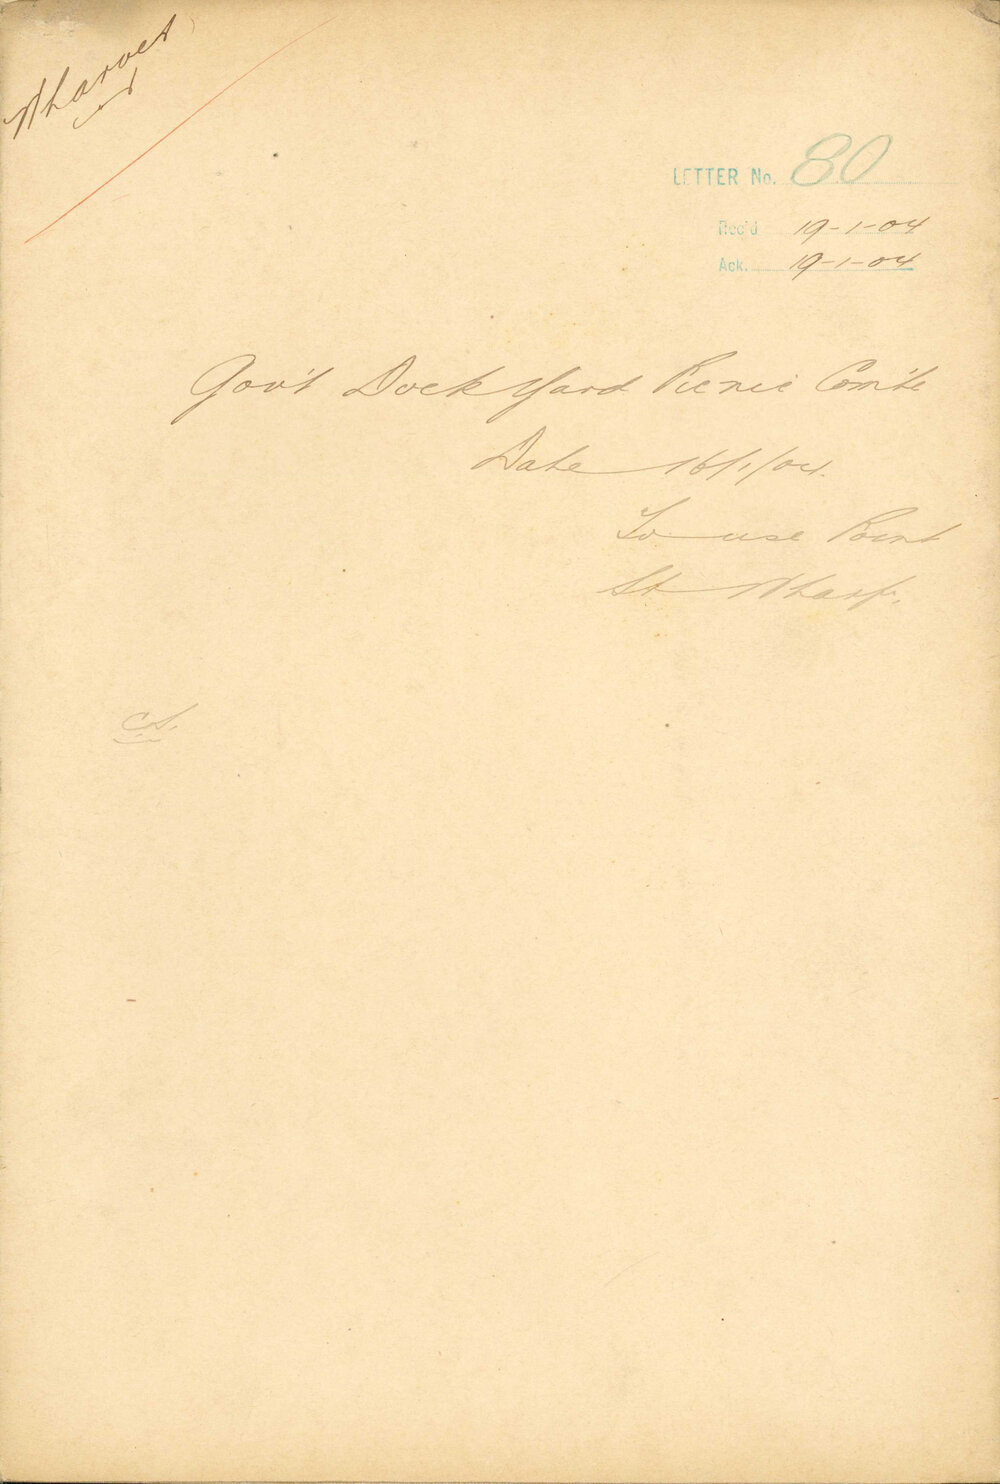 Wharves
LETTER No. 80
Rec'd 19-1-04
Ack. 19-1-04
Gov't Dock Yard Picnic Com'te
Date 16/1/04.
To use Point
St Wharf.